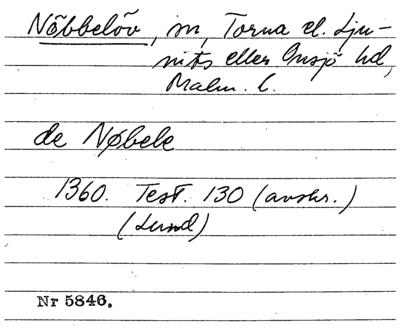 Nöbbelöv, sn, Torna el. Lju-
nits eller Onsjö hd,
Malm. l.
de Nøbele
1360. Test. 130 (avskr.)
(Lund)
Nr 5846.